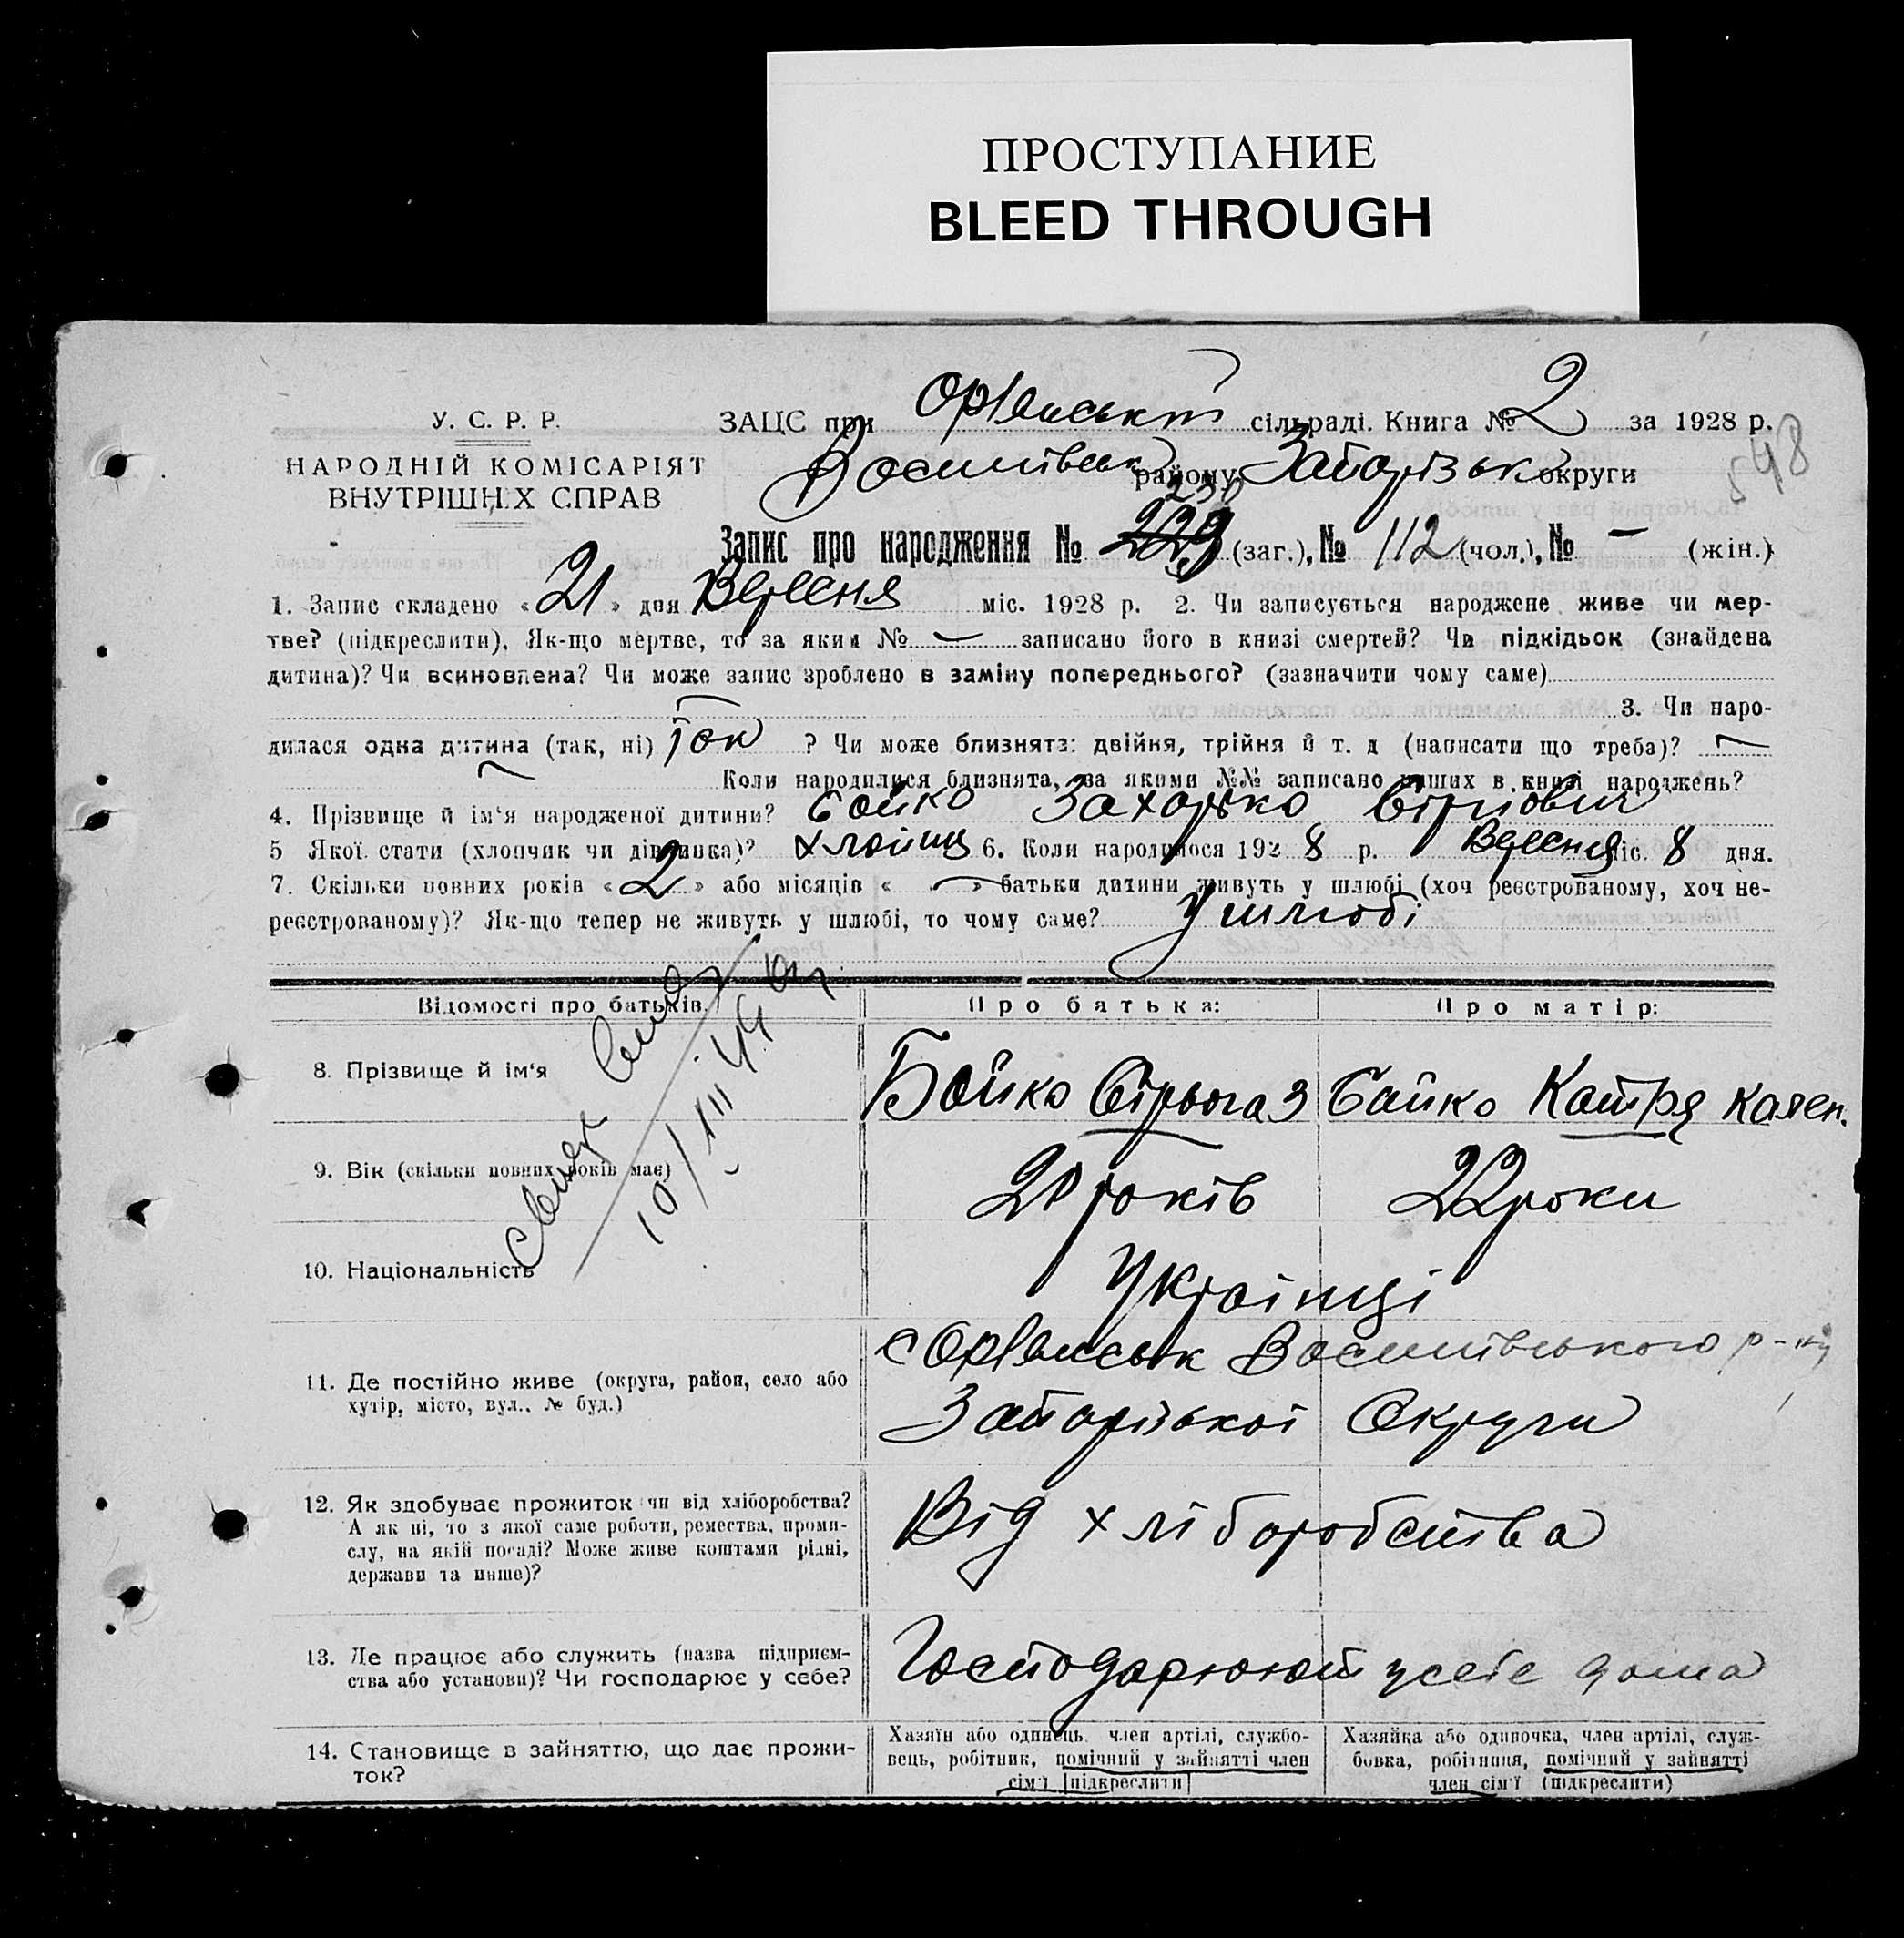 ПРОСТУПАНИЕ
BLEED THROUGH
У. С. Р. Р.
НАРОДНІЙ КОМІСАРІЯТ
ВНУТРІШНІХ СПРАВ
ЗАЦС при сільраді. Книга № 2 за 1928 р.
району Запорізьк округи
548
230
Запис про народження № 229 (заг.), № 112 (чол.), № — (жін.)
1. Запис складено « 21 » дня Вересня міс. 1928 р. 2. Чи записується народжене живе чи мер-
тве? (підкреслити). Як-що мертве, то за яким № — записано його в книзі смертей? Чи підкідьок (знайдена
дитина)? Чи всиновлена? Чи може запис зроблено в заміну попереднього? (зазначити чому саме)
3. Чи наро-
дилася одна дитина (так, ні) Так ? Чи може близнята: двійня, трійня й т. д (написати що треба)? —
— Коли народилися близнята, за якими №№ записано инших в книзі народжень?
4. Прізвище й ім'я народженої дитини? Бойко Захарько
5 Якої стати (хлопчик чи дівчинка)? хлопець 6. Коли народилося 192 8 р. Вересня міс. 8 дня.
7. Скільки повних років « 2 » або місяців « — » батьки дитини живуть у шлюбі (хоч реєстрованому, хоч не-
реєстрованому)? Як-що тепер не живуть у шлюбі, то чому саме? У шлюбі
Відомості про батьків. Про батька: Про матір:
8. Прізвище й ім'я Бойко Бойко Катря
9. Вік (скільки повних років має) років 22 роки
10. Національність Українці
11. Де постійно живе (округа, район, село або
хутір, місто, вул.. № буд.)
р-ну
Запорізької Округи
12. Як здобуває прожиток чи від хліборобства?
А як ні, то з якої саме роботи, ремества, проми-
слу, на якій посаді? Може живе коштами рідні,
держави та инше)?
Від хліборобства
13. Де працює або служить (назва підприєм-
ства або установи)? Чи господарює у себе?
Господарюють у себе дома
14. Становище в зайняттю, що дає прожи-
ток?
Хазяїн або одинець, член артілі, службо-
вець, робітник, помічний у зайнятті член
сім'ї [підкреслити]
Хазяйка або одиночка, член артілі, служ-
бовка, робітниця, помічний у зайнятті
член сім'ї (підкреслити)